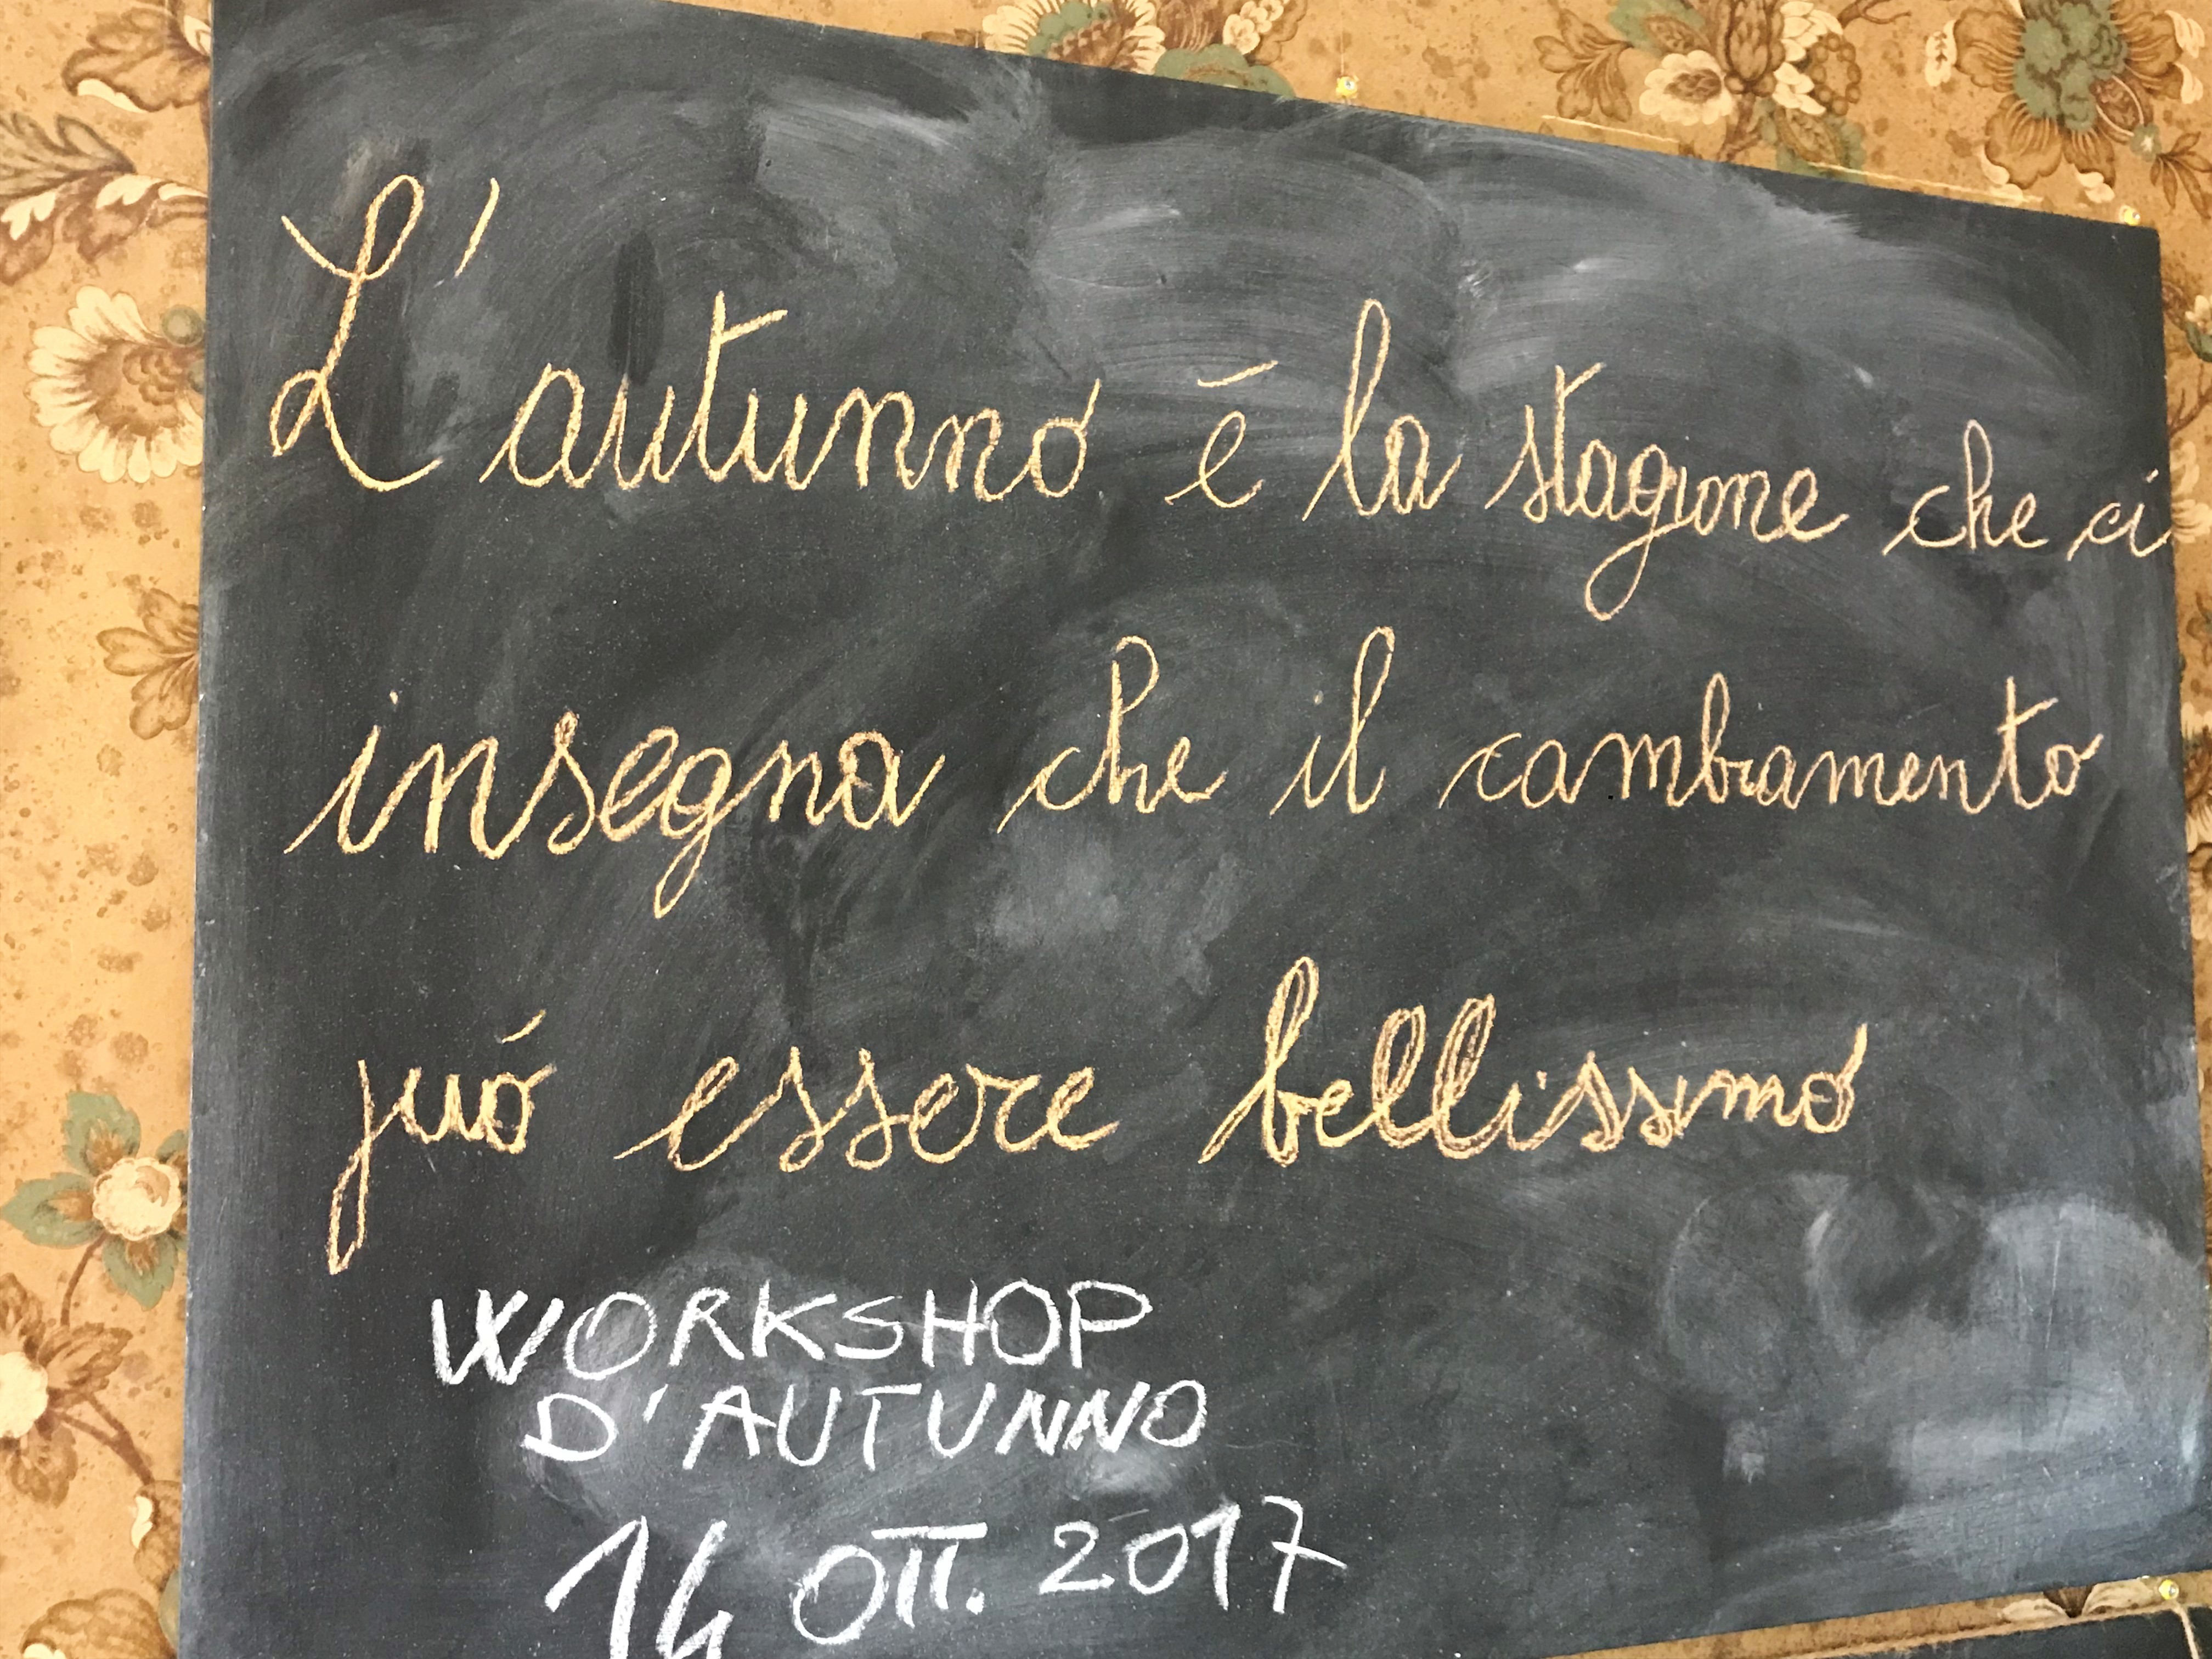 L'autunno é la stagione che ci
insegna che il cambiamento
può essere bellissimo
WORKSHOP
D'AUTUNNO
14 OTT. 2017